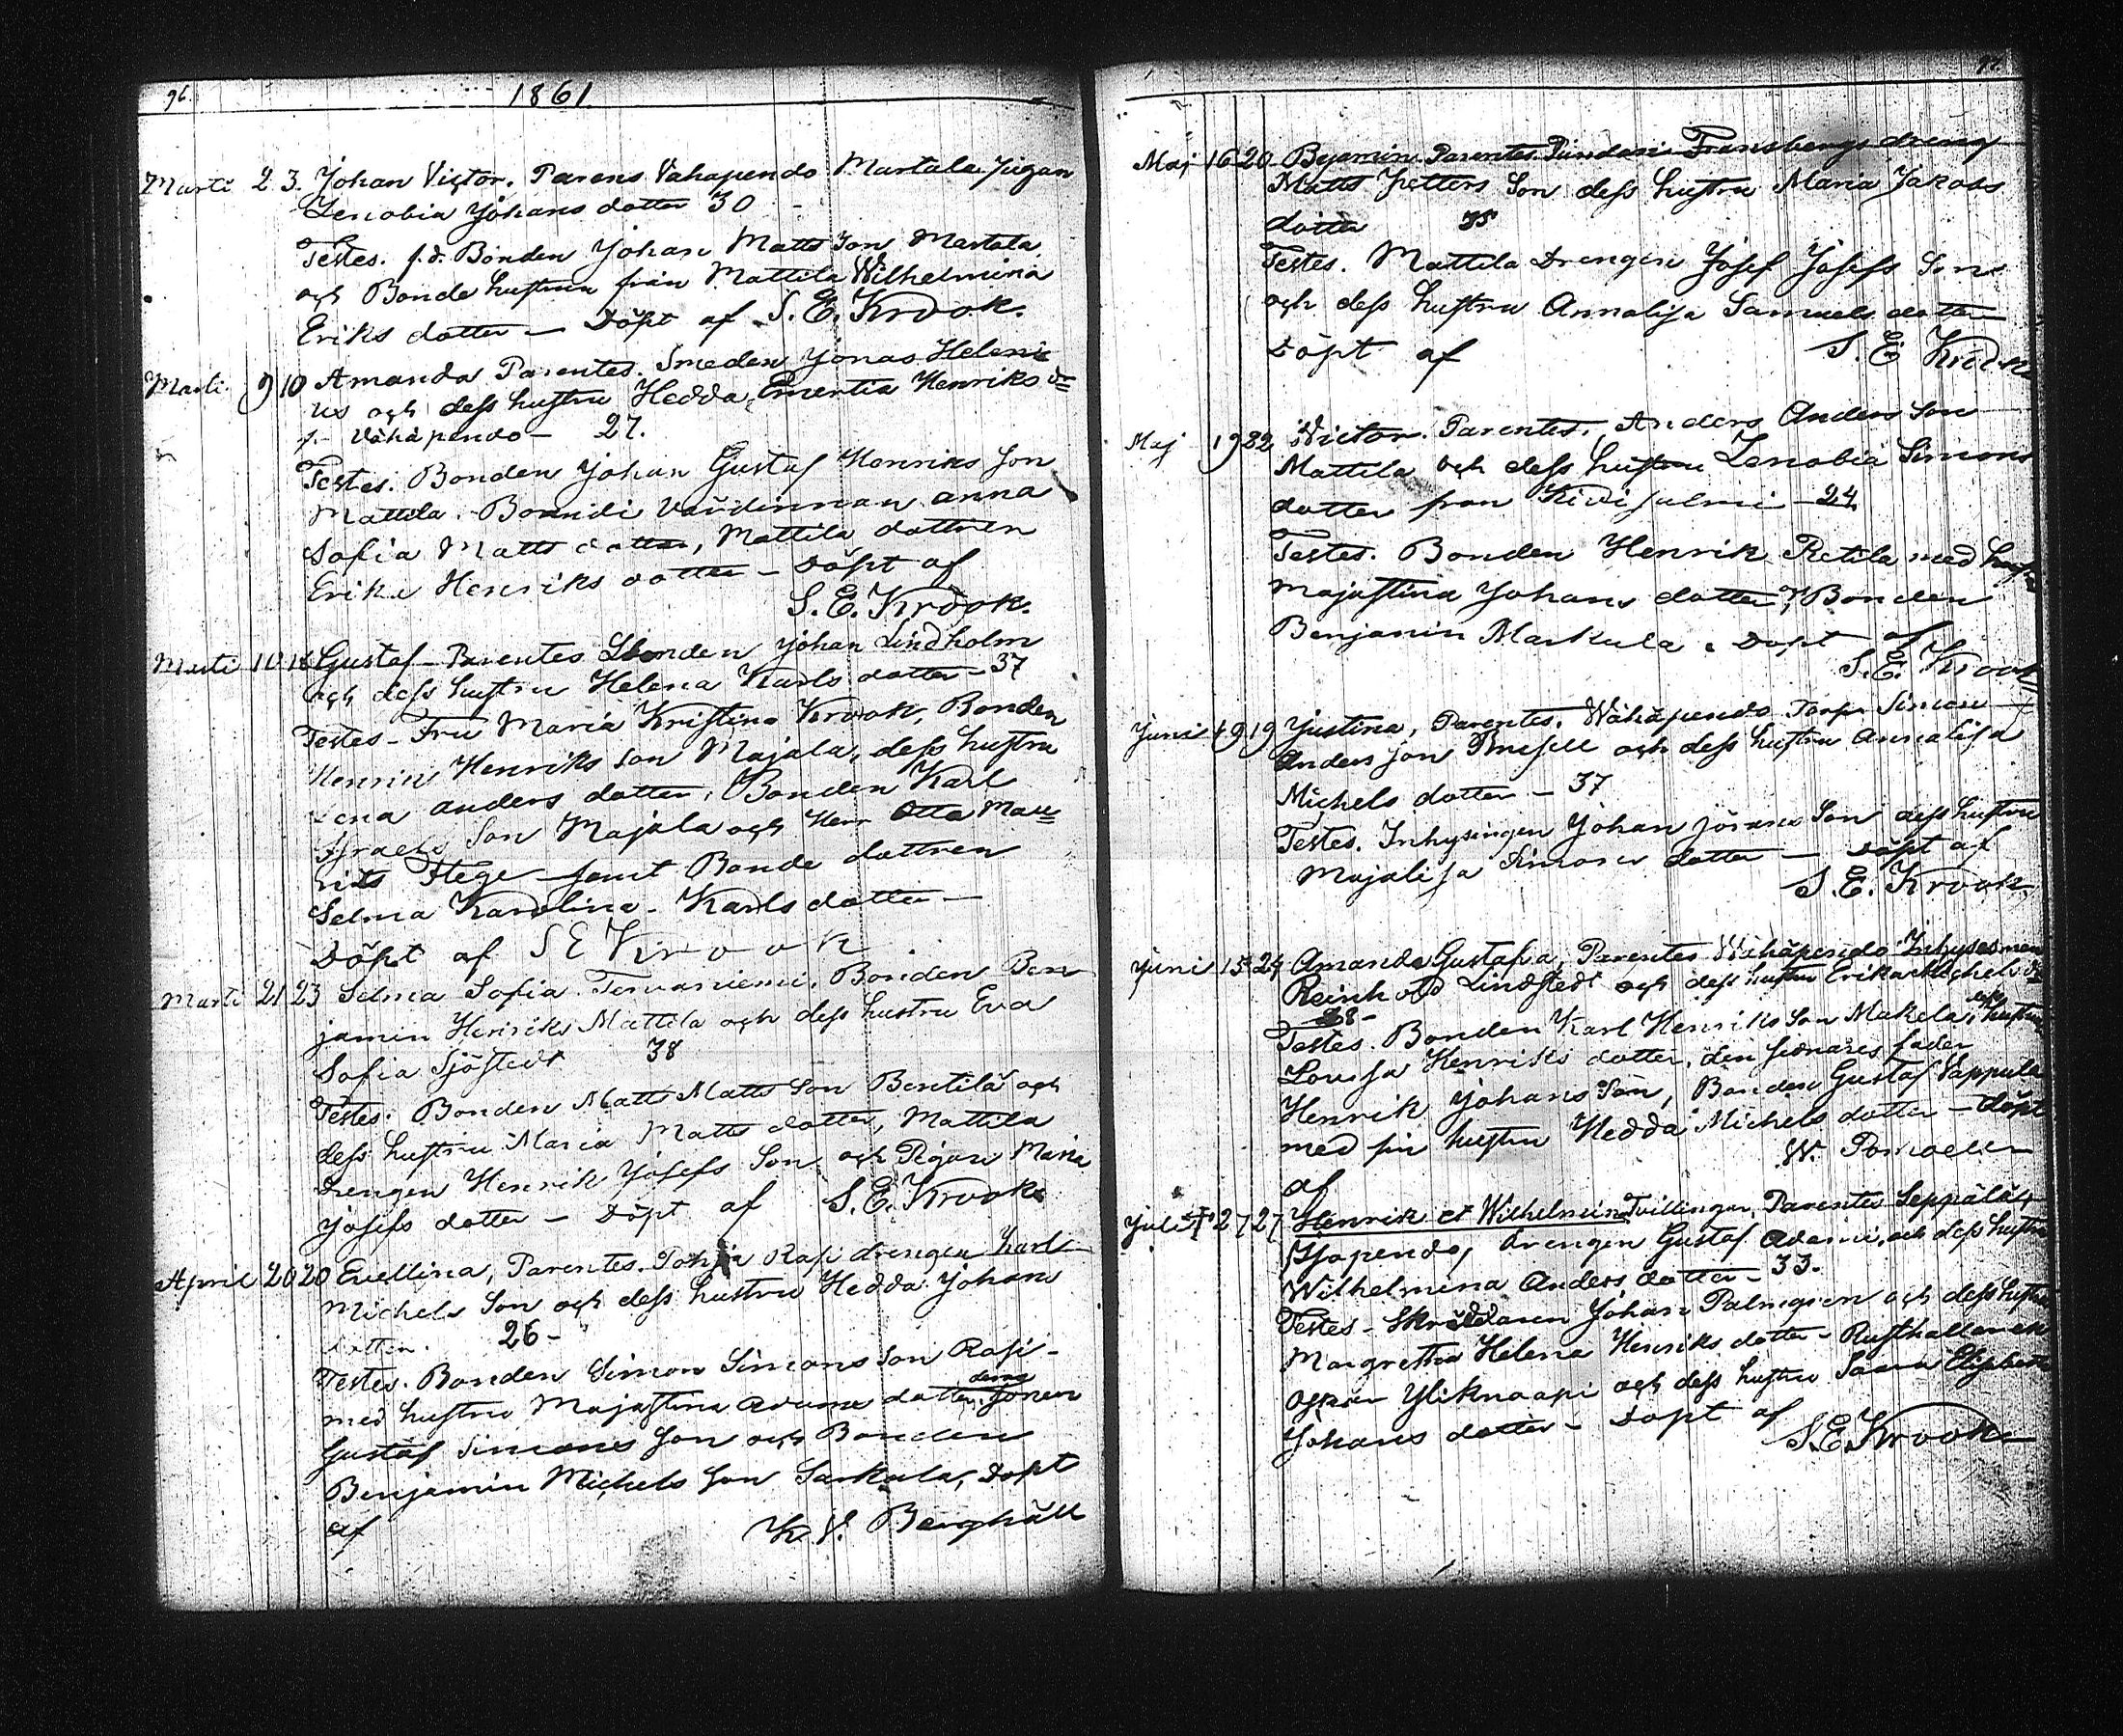 96.
1861.
Marti 2 3. Johan Victor. Parens Vahapendo Martala Pigan
Zenobia Johans dotter 30
Testes. f.d. Bonden Johan Matts Son Martala
och Bonde hustrun från Mattila Wilhelmina
Eriks dotter – Döpt af S. E. Krook.
Marti 9 10 Amanda Parentes. Smeden Jonas Heleni
us och dess hustru Hedda Emertia Henriks dr
f. Vähäpendo – 27.
Testes. Bonden Johan Gustaf Henriks son
Mattila. Bonde Värdinnan Anna
Sofia Matts dotter, Mattila dottren
Erika Henriks dotter – Döpt af
S. E. Krook.
Marti Gustaf – Parentes Johan Lindholm
och dess hustru Helena Karls dotter – 37
Testes – Fru Maria Kristina Krook, Bonden
Henrik Henriks Son Majala, dess hustru
Lena Anders dotter, Bonden Karl
Israels Son Majala och Herr Otto Mau
rits Hege samt Bonde dottren
Selma Karolina Karls dotter –
Döpt af S E Krook
Marti 21 23 Selma Sofia Tervaniemi. Bonden Ben
jamin Henriks Mattila och dess hustru Eva
Sofia Sjöstedt 38
Testes. Bonden Matts Matts Son Bentilä och
dess hustru Maria Matts dotter, Mattila
Drengen Henrik Josefs Son och Pigan Maria
Josefs dotter – Döpt af S. E. Krook
April 20 20 Evellina, Parentes. Pohja Rasi drengen Karl
Michels Son och dess hustru Hedda Johans
dotter. 26 –
Testes. Bonden Simon Simons Son Rasi –
med hustru Majastina Adams dotter, deras Sonen
Gustaf Simons Son och Bonden
Benjamin Michels Son Sarkula, Döpt
af K. V. Berghäll
Maj 16 20 Bejamin Parentes. Fransbergs dreng
Matts Petters Son dess hustru Maria Jakobs
dotter 35
Testes. Mattila Drengen Josef Josefs Son
och dess hustru Annalisa Samuels dotter
Döpt af S. E Krook
Maj 19 Victor. Parentes. Anders Anders Son
Mattila och dess hustru Zenobia Simons
dotter från Kivisalmi – 24
Testes. Bonden Henrik Retila med hustru
Majastina Johans dotter, Bonden
Benjamin Markula. Döpt af
S. E. Krook
Juni 19 Justina, Parentes. Wähäpendo Torpr Simon
Anders Son och dess hustru Annalisa
Michels dotter – 37
Testes. Inhysingen Johan Jörans Son dess hustru
Majalisa Simons dotter – Döpt af
S. E. Krook
Juni 15 24 Amanda Gustafva, Parentes Wähäpendo Inhysesman
Reinhold Lindstedt och dess hustru Erika Michels dr
28 –
Testes. Bonden Karl Henriks Son Makela, dess hustru
Lovisa Henriks dotter, den sednares fader
Henrik Johans Son, Bonden Gustaf Vappula
med sin hustru Hedda Michels dotter – döpt
af W.
Juli 27 27 Henrik et Wilhelmina Tvillingar, Parentes Seppälä
Isopendo, drengen Gustaf Adami, och dess hustru
Wilhelmina Anders dotter – 33.
Testes – Skräddaren Johan Palmgren och dess hustru
Margretha Helena Henriks dotter – Rusthållaren
Yliknaapi och dess hustru Saara Elisabeth
Johans dotter – Döpt af S. E. Krook